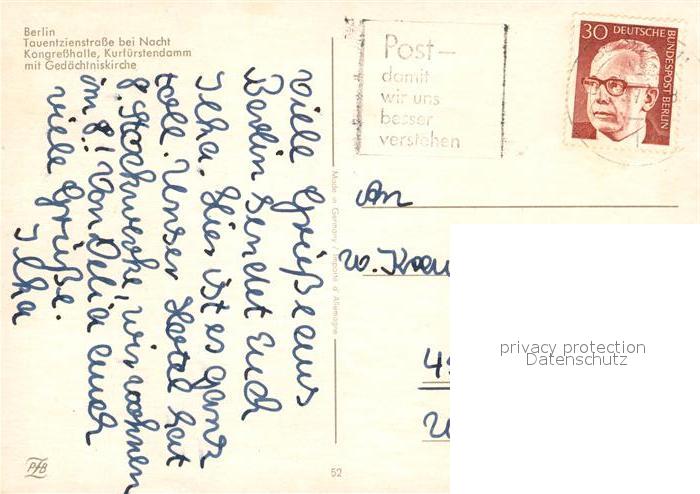 Berlin
Tauentzienstraße bei Nacht
Kongreßhalle, Kurfürstendamm
mit Gedächtniskirche
Viele Grüße aus
Berlin sendet Euch
Ilka. Hier ist es ganz
toll. Unser Hotel hat
8 Stockwerke, wir wohnen
im 8! Von Delia auch
viele Grüße.
Ilka
Made in Germany / Importé d'Allemagne
Post–
damit
wir uns
besser
verstehen
30 DEUTSCHE
BUNDESPOST BERLIN
An
W.
privacy protection
Datenschutz
PfB
52